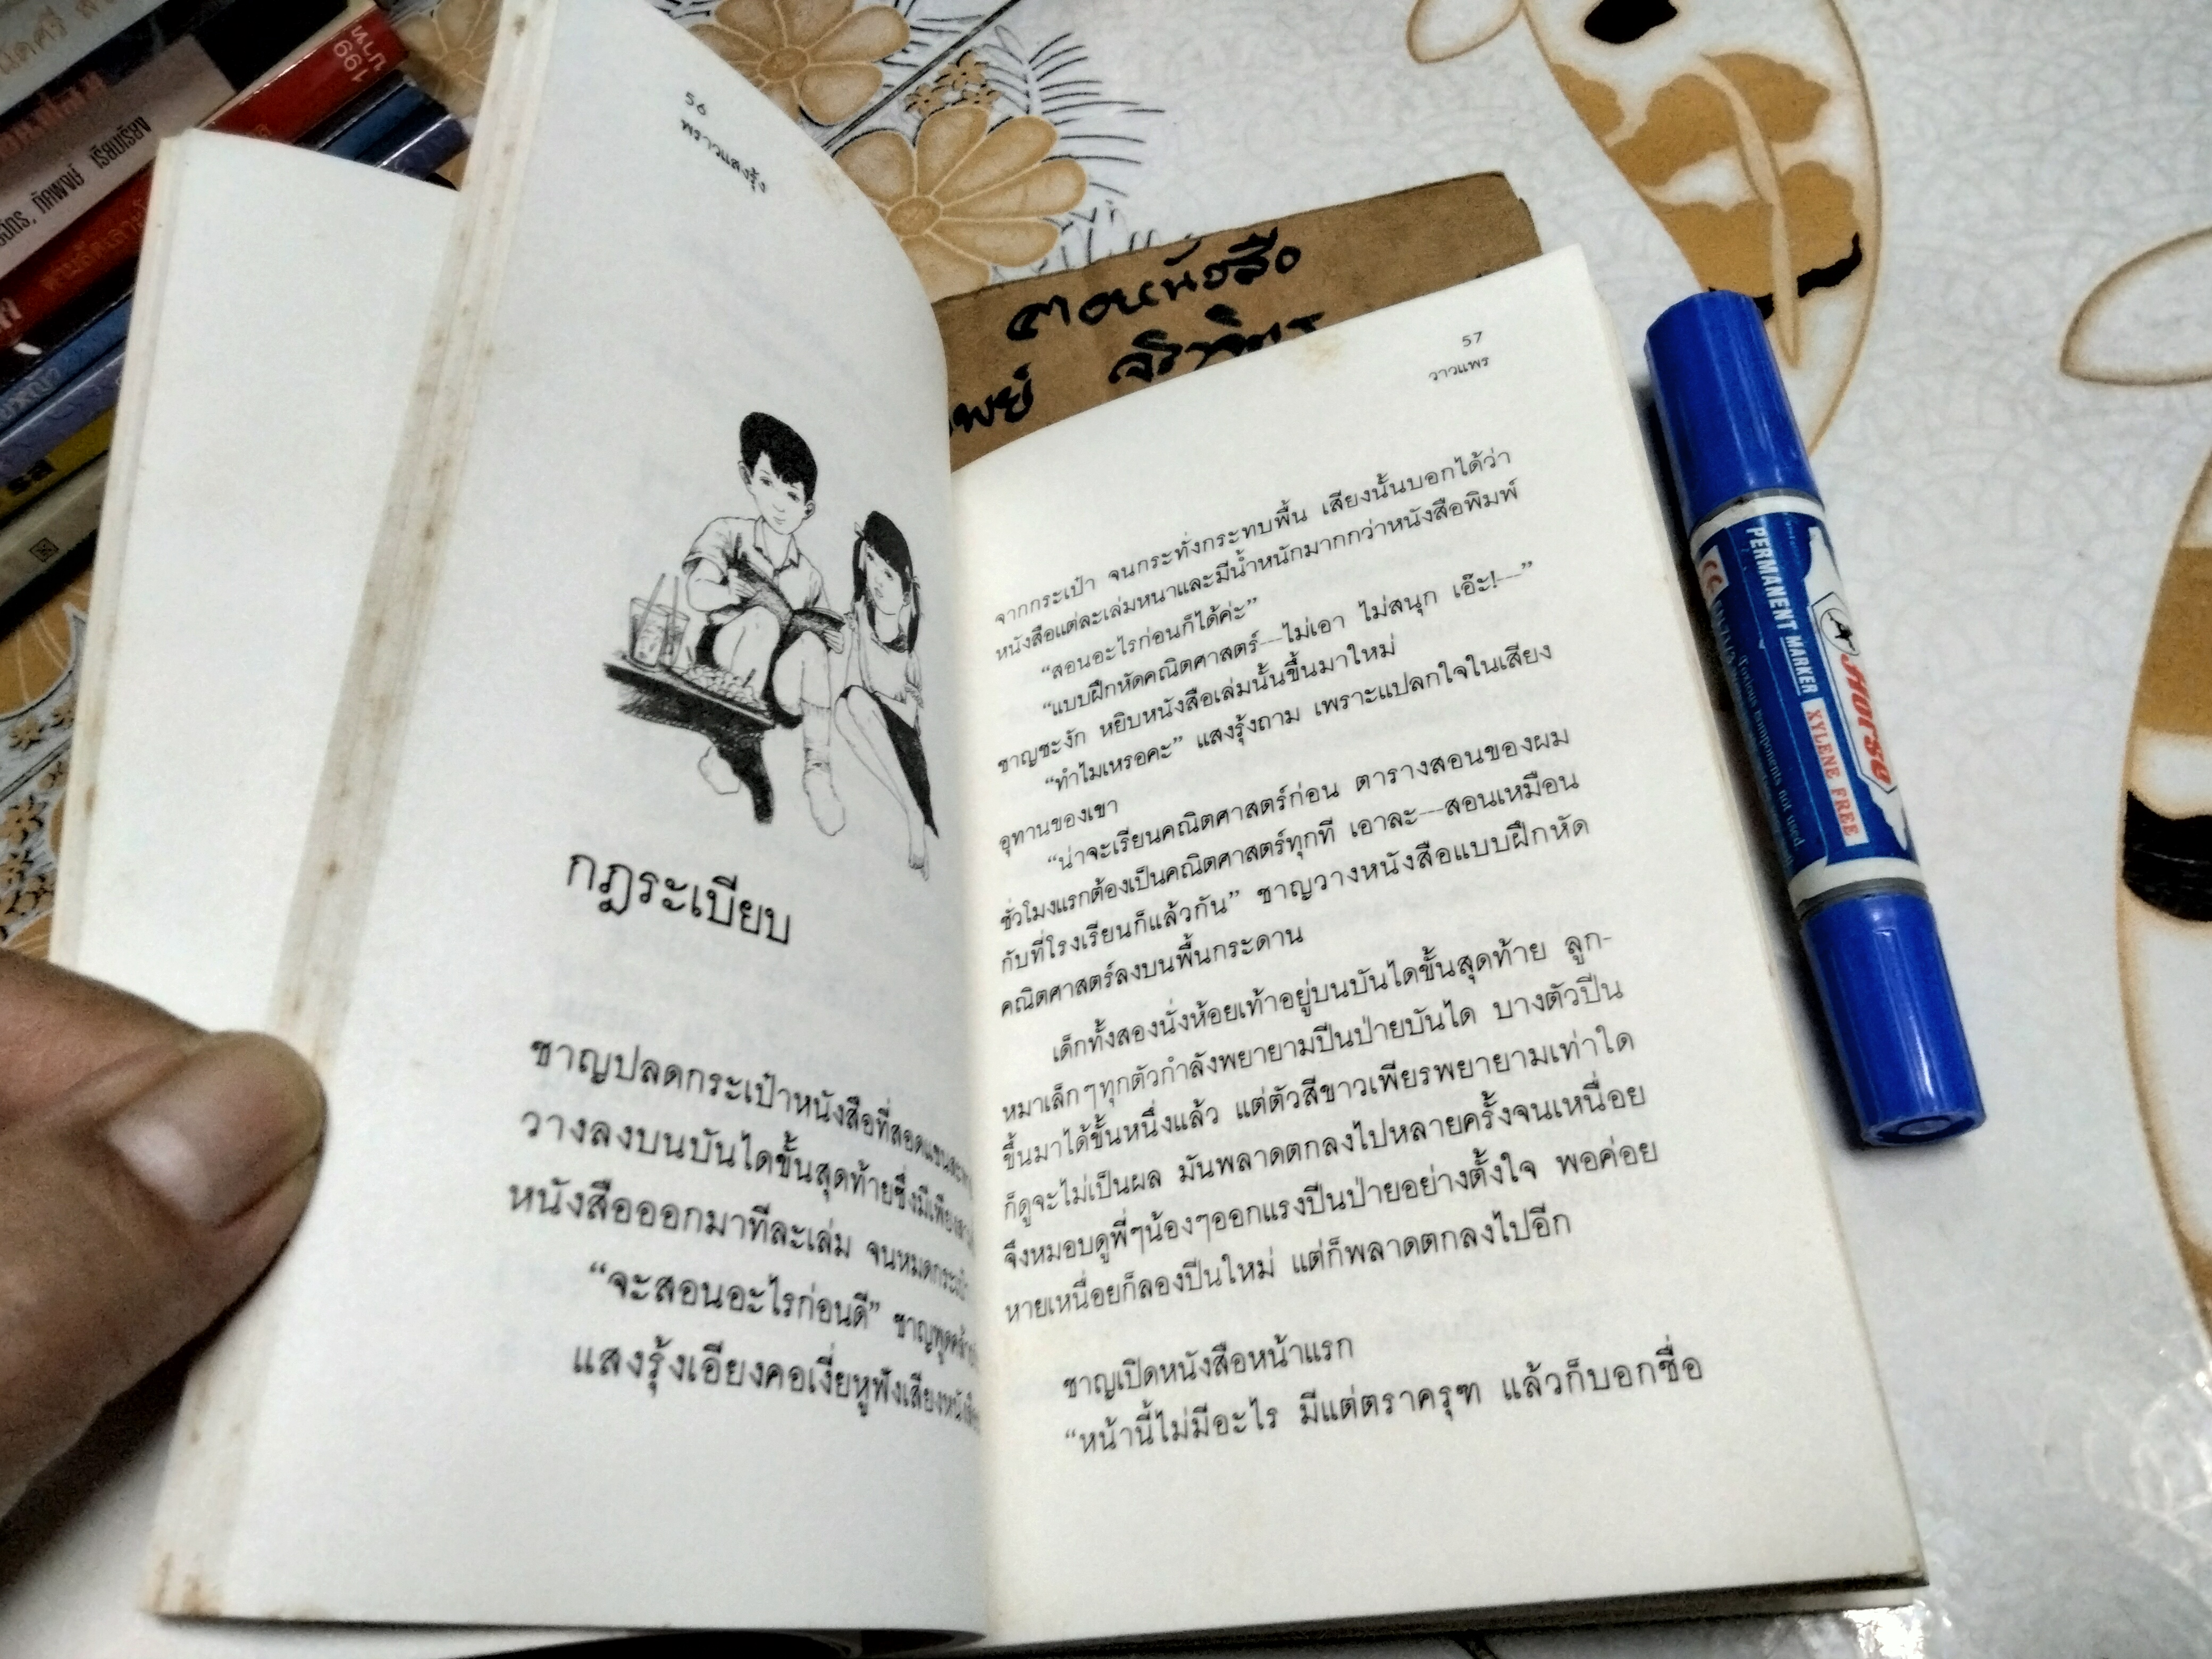 56
พราวแสงรุ้ง
กฎระเบียบ
ชาญปลดกระเป๋าหนังสือที่สอดแขน
วางลงบนบันไดขั้นสุดท้ายซึ่งมีเพียง
หนังสือออกมาทีละเล่ม จนหมดกระเป๋า
“จะสอนอะไรก่อนดี” ชาญพูดคล้าย
แสงรุ้งเอียงคอเงี่ยหูฟังเสียงหนังสือ
57
วาวแพร
จากกระเป๋า จนกระทั่งกระทบพื้น เสียงนั้นบอกได้ว่า
หนังสือแต่ละเล่มหนาและมีน้ำหนักมากกว่าหนังสือพิมพ์
“สอนอะไรก่อนก็ได้ค่ะ”
“แบบฝึกหัดคณิตศาสตร์---ไม่เอา ไม่สนุก เอ๊ะ!---”
ชาญชะงัก หยิบหนังสือเล่มนั้นขึ้นมาใหม่
“ทำไมเหรอคะ” แสงรุ้งถาม เพราะแปลกใจในเสียง
อุทานของเขา
“น่าจะเรียนคณิตศาสตร์ก่อน ตารางสอนของผม
ชั่วโมงแรกต้องเป็นคณิตศาสตร์ทุกที เอาละ---สอนเหมือน
กับที่โรงเรียนก็แล้วกัน” ชาญวางหนังสือแบบฝึกหัด
คณิตศาสตร์ลงบนพื้นกระดาน
เด็กทั้งสองนั่งห้อยเท้าอยู่บนบันไดขั้นสุดท้าย ลูก-
หมาเล็กๆทุกตัวกำลังพยายามปีนป่ายบันได บางตัวปีน
ขึ้นมาได้ขั้นหนึ่งแล้ว แต่ตัวสีขาวเพียรพยายามเท่าใด
ก็ดูจะไม่เป็นผล มันพลาดตกลงไปหลายครั้งจนเหนื่อย
จึงหมอบดูพี่ๆน้องๆออกแรงปีนป่ายอย่างตั้งใจ พอค่อย
หายเหนื่อยก็ลองปีนใหม่ แต่ก็พลาดตกลงไปอีก
ชาญเปิดหนังสือหน้าแรก
“หน้านี้ไม่มีอะไร มีแต่ตราครุฑ แล้วก็บอกชื่อ
PERMANENT MARKER XYLENE FREE
Horse